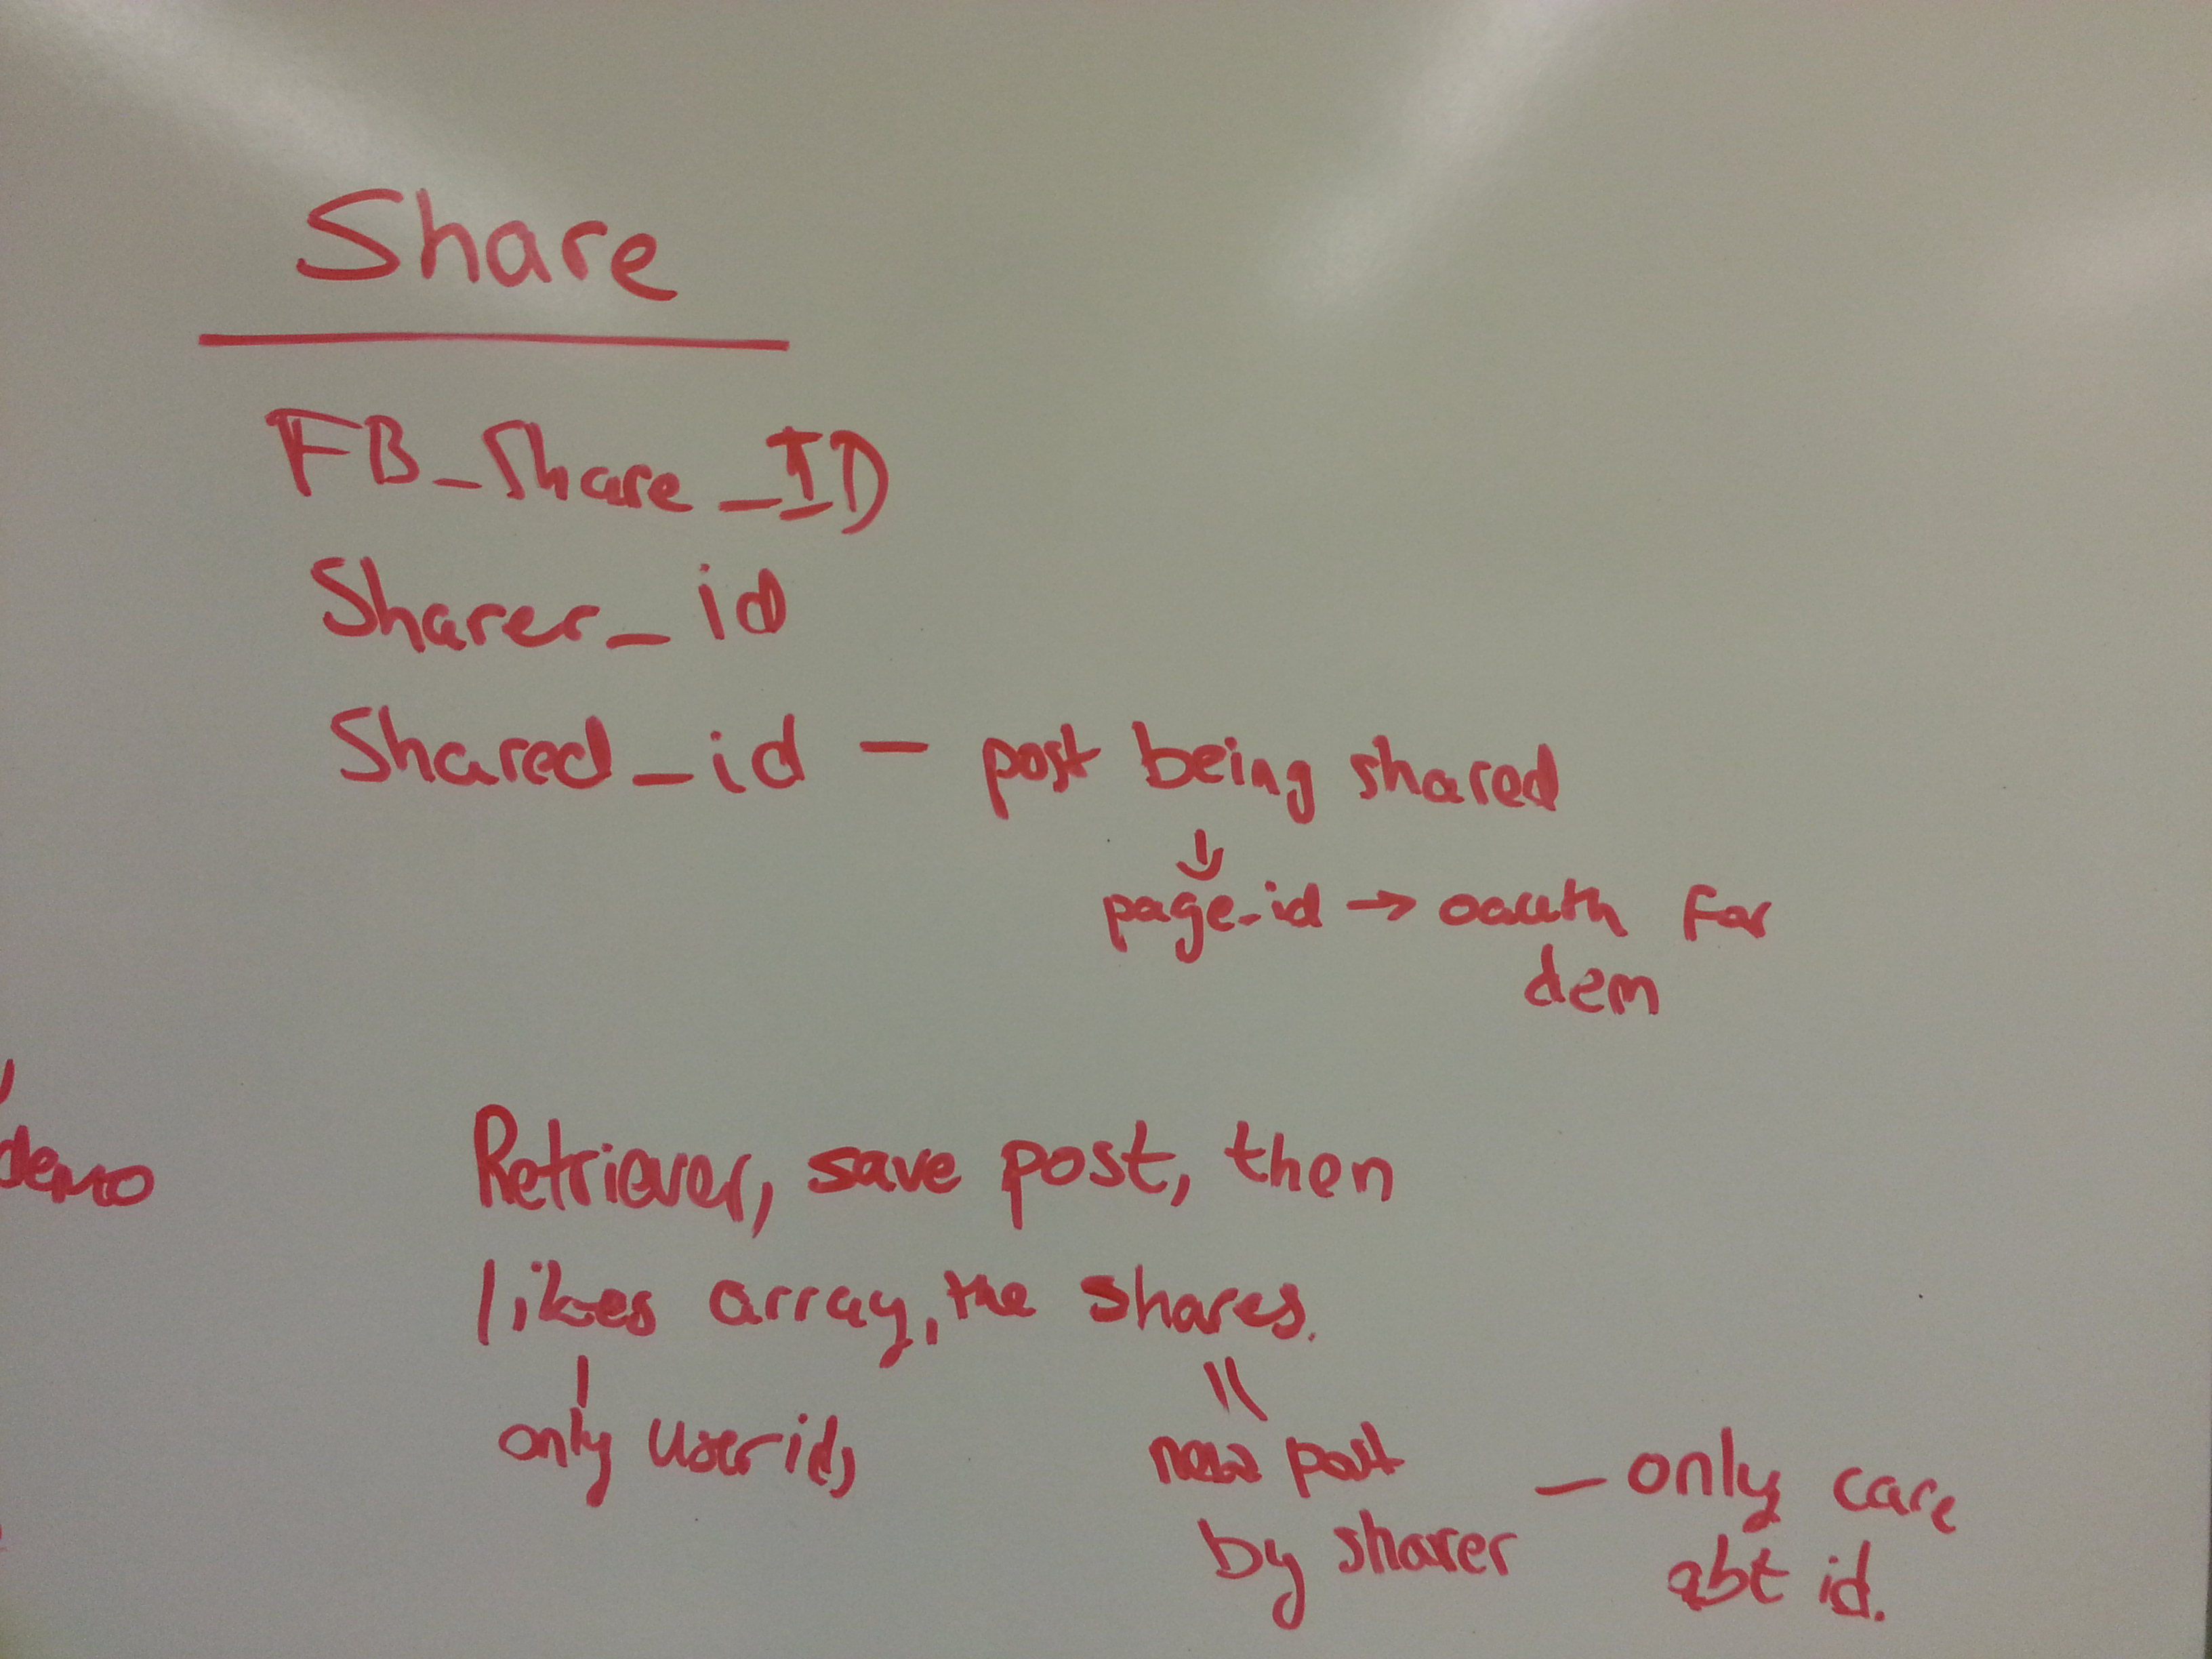 Share
FB_Share_ID
Sharer_id
Shared_id — post being shared
↓
page_id → oauth For
dem
demo
Retriever, save post, then
likes array, the shares.
only user ids
new post
by sharer — only care
abt id.